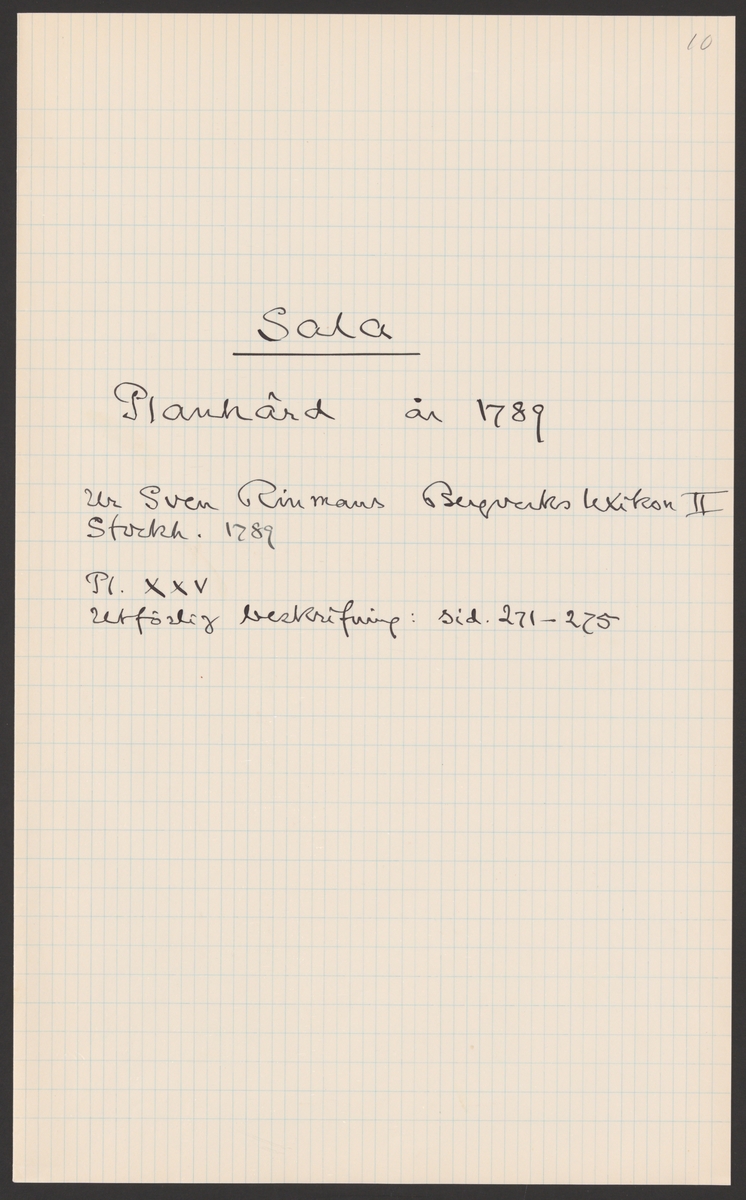 10
Sala
Planhärd år 1789
Ur Sven Rinmans Bergverkslexikon II
Stockh. 1789
Pl. XXV
Utförlig beskrifning: sid. 271-275